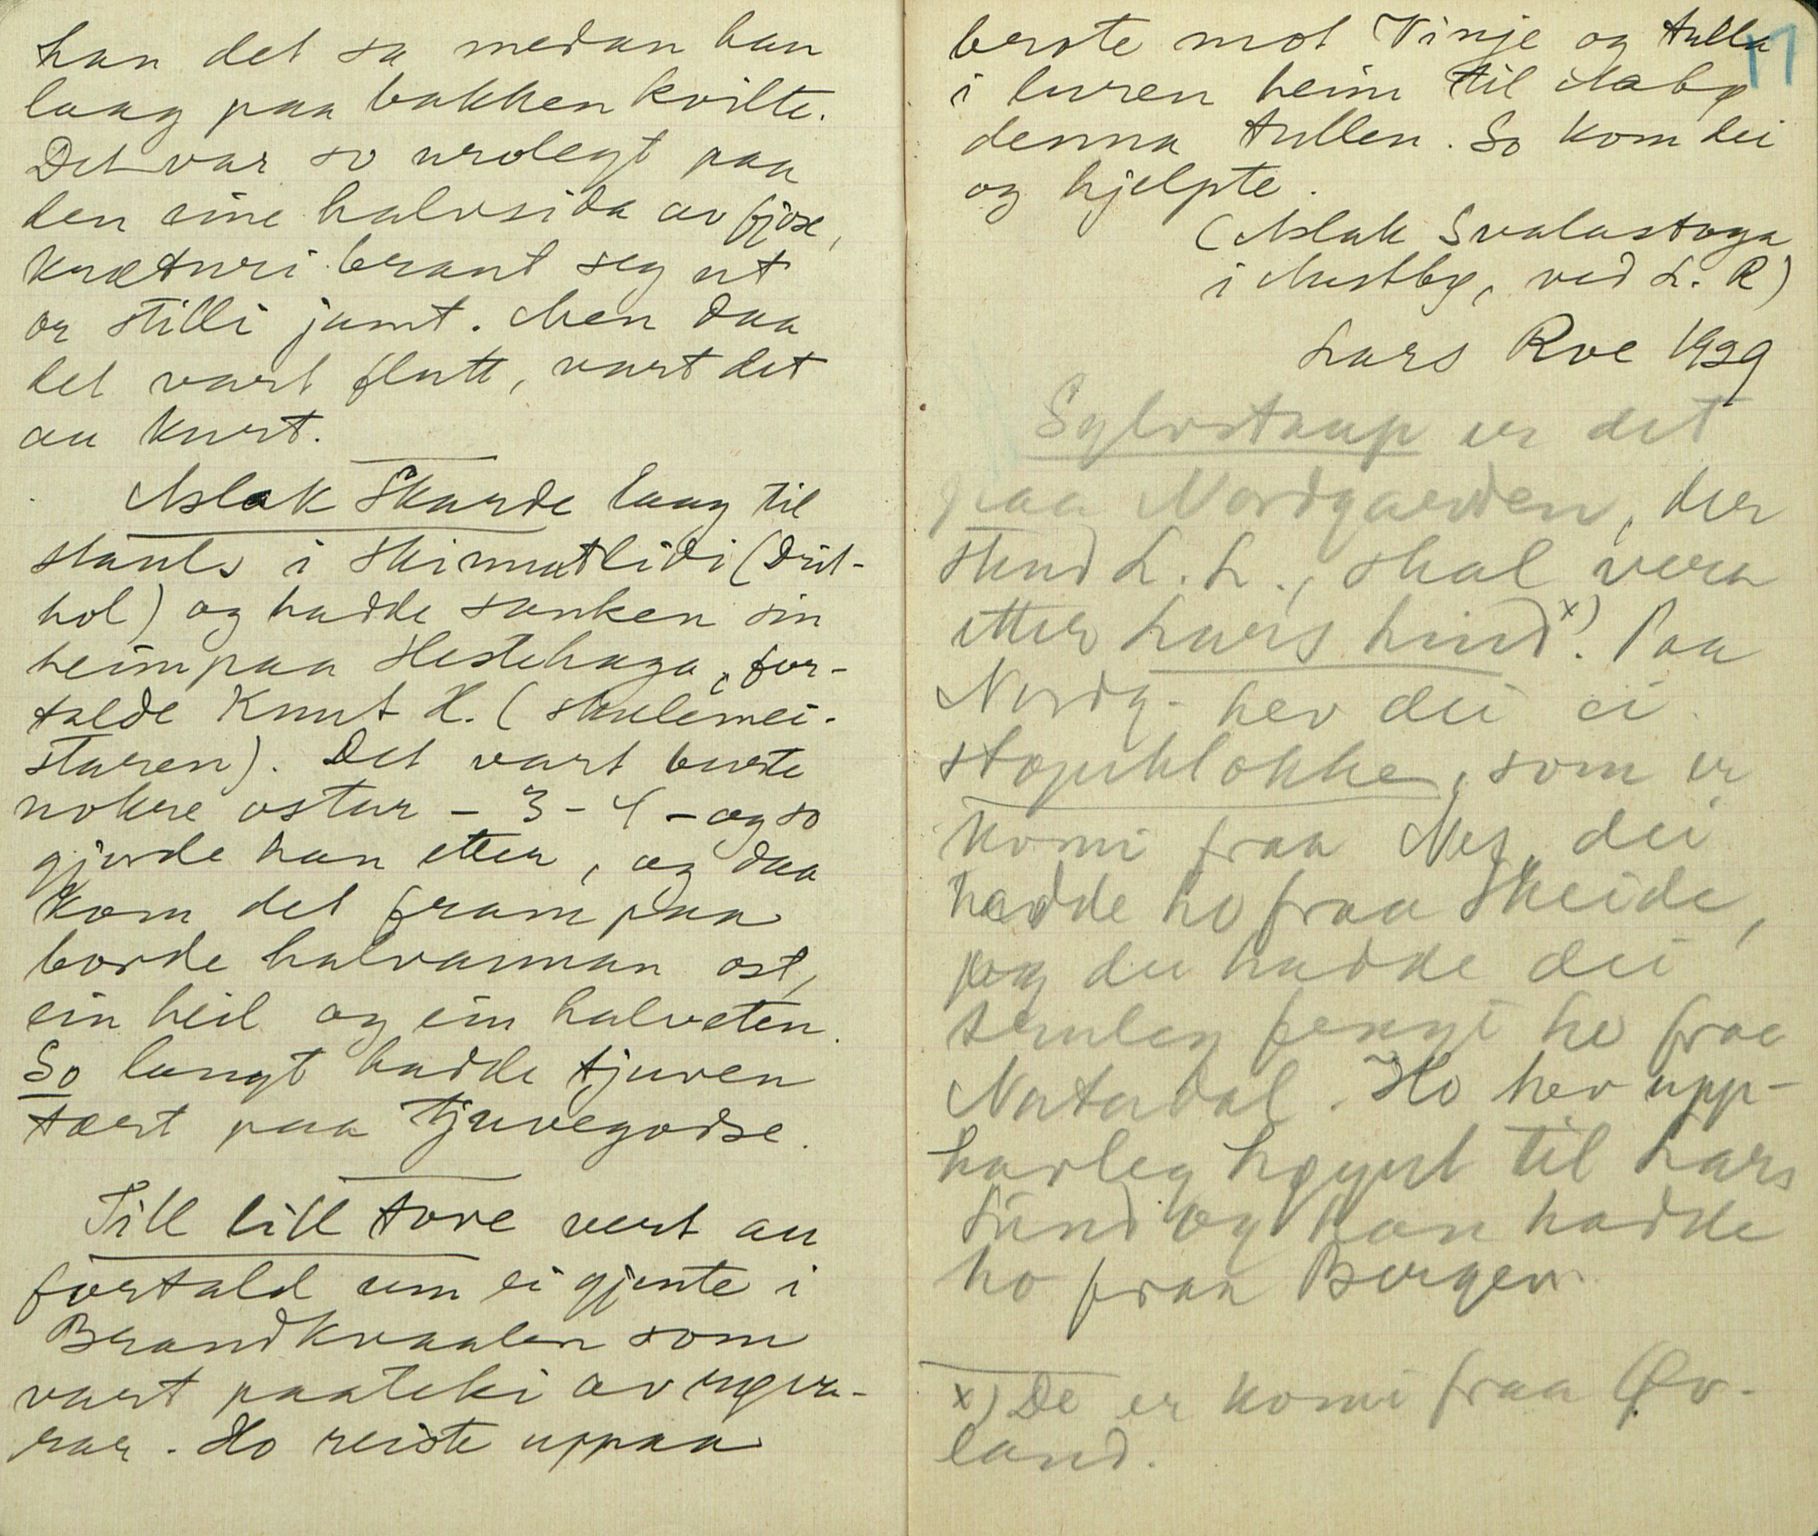 han det sa medan han
laag paa bakken kvilte.
Det var so urolegt paa
den eine halvsida av fjose,
krøturi braut seg ut
or stilli jamt. Men daa
det vart flutt, vart det
au kvert.
Aslak Skarde laag til
stauls i Skinnatlidi (Dal-
hol) og hadde sanken sin
heim paa Hestehaga, for-
talde Knut H. (skulemei-
staren). Det vart burte
nokre ostar - 3-4 - og so
gjorde han etter, og daa
kom det fram paa
borde halvannan ost,
ein heil og ein halveten.
So langt hadde tjuven
tært paa tjuvegodse.
Till lill tove vert au
fortald um ei gjente i
Brandkvaalen som
vart paateki av røva-
rar. Ho reiste uppaa
17
berote mot Vinje og tulla
i luren heim til Aabø
denna tullen. So kom dei
og hjelpte.
(Aslak Svalastoga
i Austbø, ved L. R)
Lars Roe 1929
Sylvstaup er det
paa Nordgarden, der
stend L. L., skal vera
etter Lars Lind x). Paa
Nordg. hev dei ei
stopuklokke, som er
komi fraa Nes, dei
hadde ho fraa Skeide,
og der hadde dei
truleg fengi ho fraa
Natadal. Ho hev upp-
havleg høyrt til Lars
Lind og han hadde
ho fraa Bergen
x) De er komi fraa Øv-
land.